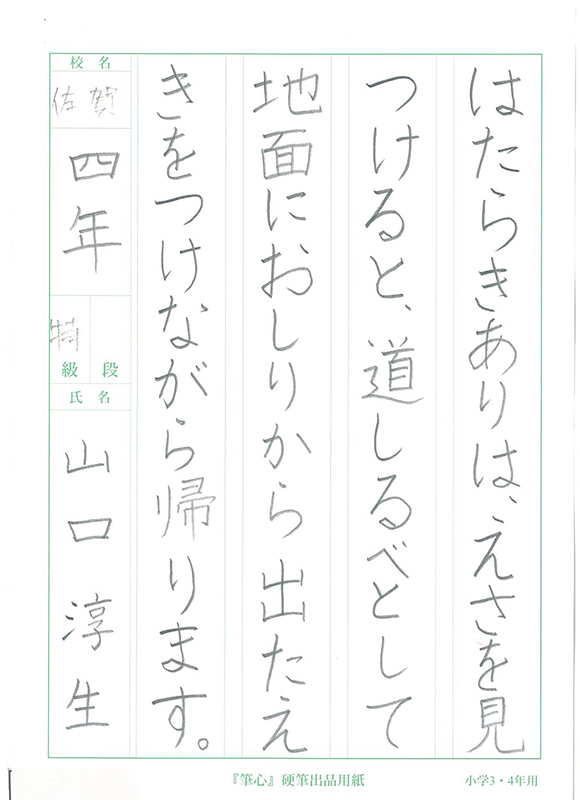 はたらきありは、えさを見
つけると、道しるべとして
地面におしりから出たえ
きをつけながら帰ります。
校名
佐賀
四年
特
級 段
氏名
山口淳生
『筆心』硬筆出品用紙
小学3・4年用